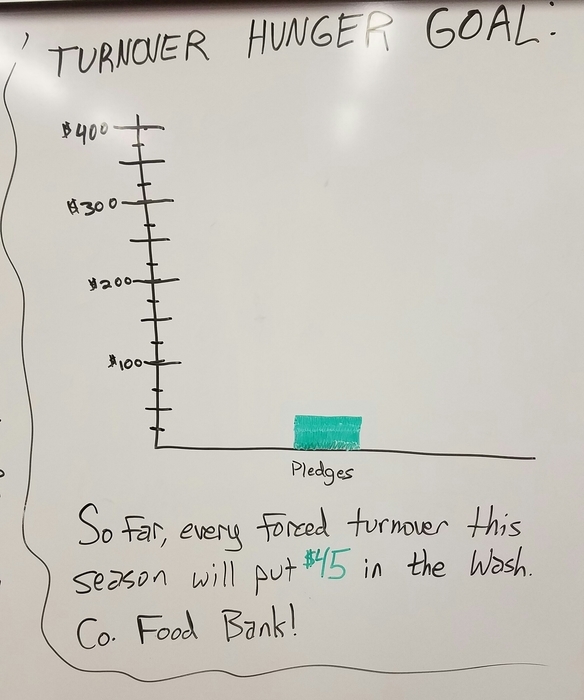 TURNOVER HUNGER GOAL:
$400
$300
$200
$100
Pledges
So far, every forced turnover this
season will put $45 in the Wash.
Co. Food Bank!